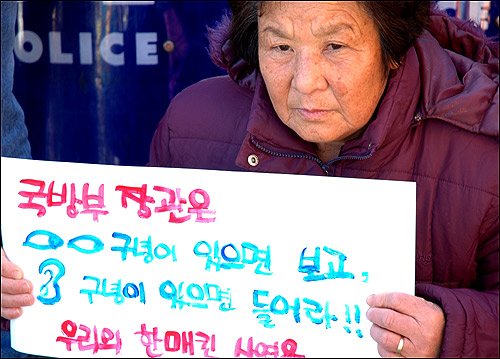 OLICE
국방부 장관은
구녕이 있으면 보고,
구녕이 있으면 들어라!!
우리의 한매킨